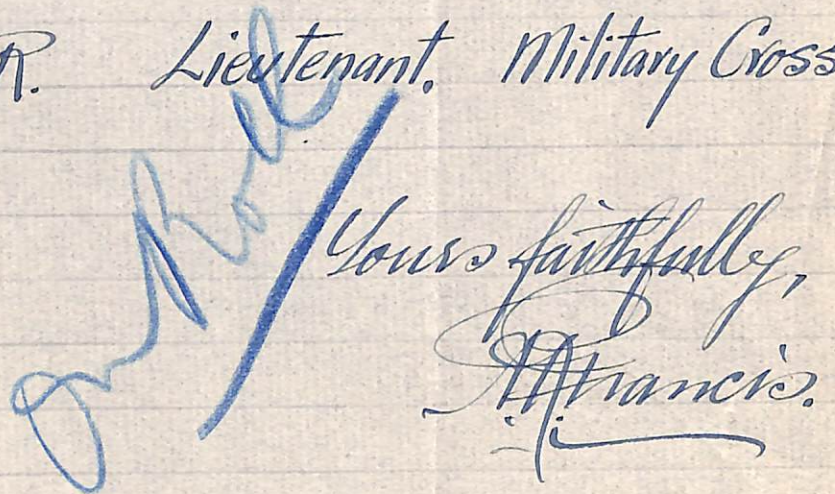 R. Lieutenant. Military Cross
On Roll
Yours faithfully,
Francis.